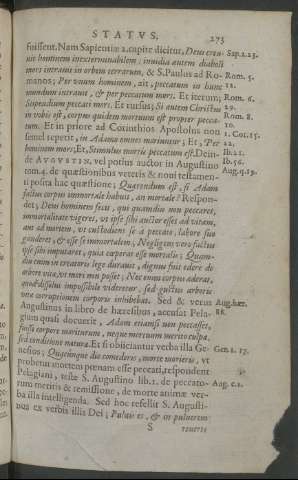 STATVS, 275
fuissent. Nam Sapientiæ 2. capite dicitur, Deus crea- Sap. 2. 23.
uit hominem inexterminabilem: inuidia autem diaboli
mors intrauit in orbem terrarum, & S. Paulus ad Ro- Rom. 5.
manos; Per vnum hominem, ait, peccatum in hunc 12.
mundum intrauit, & per peccatum mors. Et iterum; Rom. 6.
Stipendium peccati mors. Et rursus; Si autem Christus 29.
in vobis est, corpus quidem mortuum est propter pecca- Rom. 8.
tum. Et in priore ad Corinthios Apostolus non 10.
semel repetit, in Adamo omnes moriuntur; Et, Per 1. Cor. 15.
hominem mors; Et, Stimulus mortis peccatum est. Dein- 22.
de AVGVSTIN. vel potius auctor in Augustino Ib. 56.
tom. 4. de quæstionibus veteris & noui testamen- Aug. q. 19.
ti posita hac quæstione; Quærendum est, si Adam
factus corpus immortale habuit, an mortale? Respon-
det; Deus hominem fecit, qui quamdiu non peccaret,
immortalitate vigeret, vt ipse sibi auctor esset ad vitam,
aut ad mortem, vt custodiens se à peccato, labore suo
gauderet, & esse se immortalem; Negligens vero factus
ipse sibi imputaret, quia cœperat esse mortalis; Quam-
diu enim in creatoris lege durauit, dignus fuit edere de
arbore vitæ, vt mori non posset; Nec enim corpus aderat,
quod dissolui impossibile videretur, sed gustus arboris
vitæ corruptionem corporis inhibebat. Sed & verus Aug. hær.
Augustinus in libro de hæresibus, accusat Pela- 88.
gium quasi docuerit, Adam etiamsi non peccasset,
fuisse corpore moriturum, neque mortuum merito culpæ,
sed conditione naturæ. Et si obiiciantur verba illa Ge- Gen. 2. 17.
neseos; Quacunque die comederis, morte morieris, vt
probetur mortem pœnam esse peccati, respondent
Pelagiani, teste S. Augustino lib. 1. de peccato- Aug. c. 2.
rum meritis & remissione, de morte animæ ver-
ba illa intelligenda. Sed hoc refellit S. Augusti-
nus ex verbis illis Dei; Puluis es, & in puluerem
S reuerte-